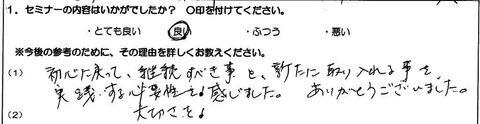 1．セミナーの内容はいかがでしたか？ ○印を付けてください。
・とても良い ・良い ・ふつう ・悪い
※今後の参考のために、その理由を詳しくお教えください。
(1) 初心に戻って、継続すべき事と、新たに取り入れる事を、
実践する必要性を感じました。 ありがとうございました。
(2) 大切さを！